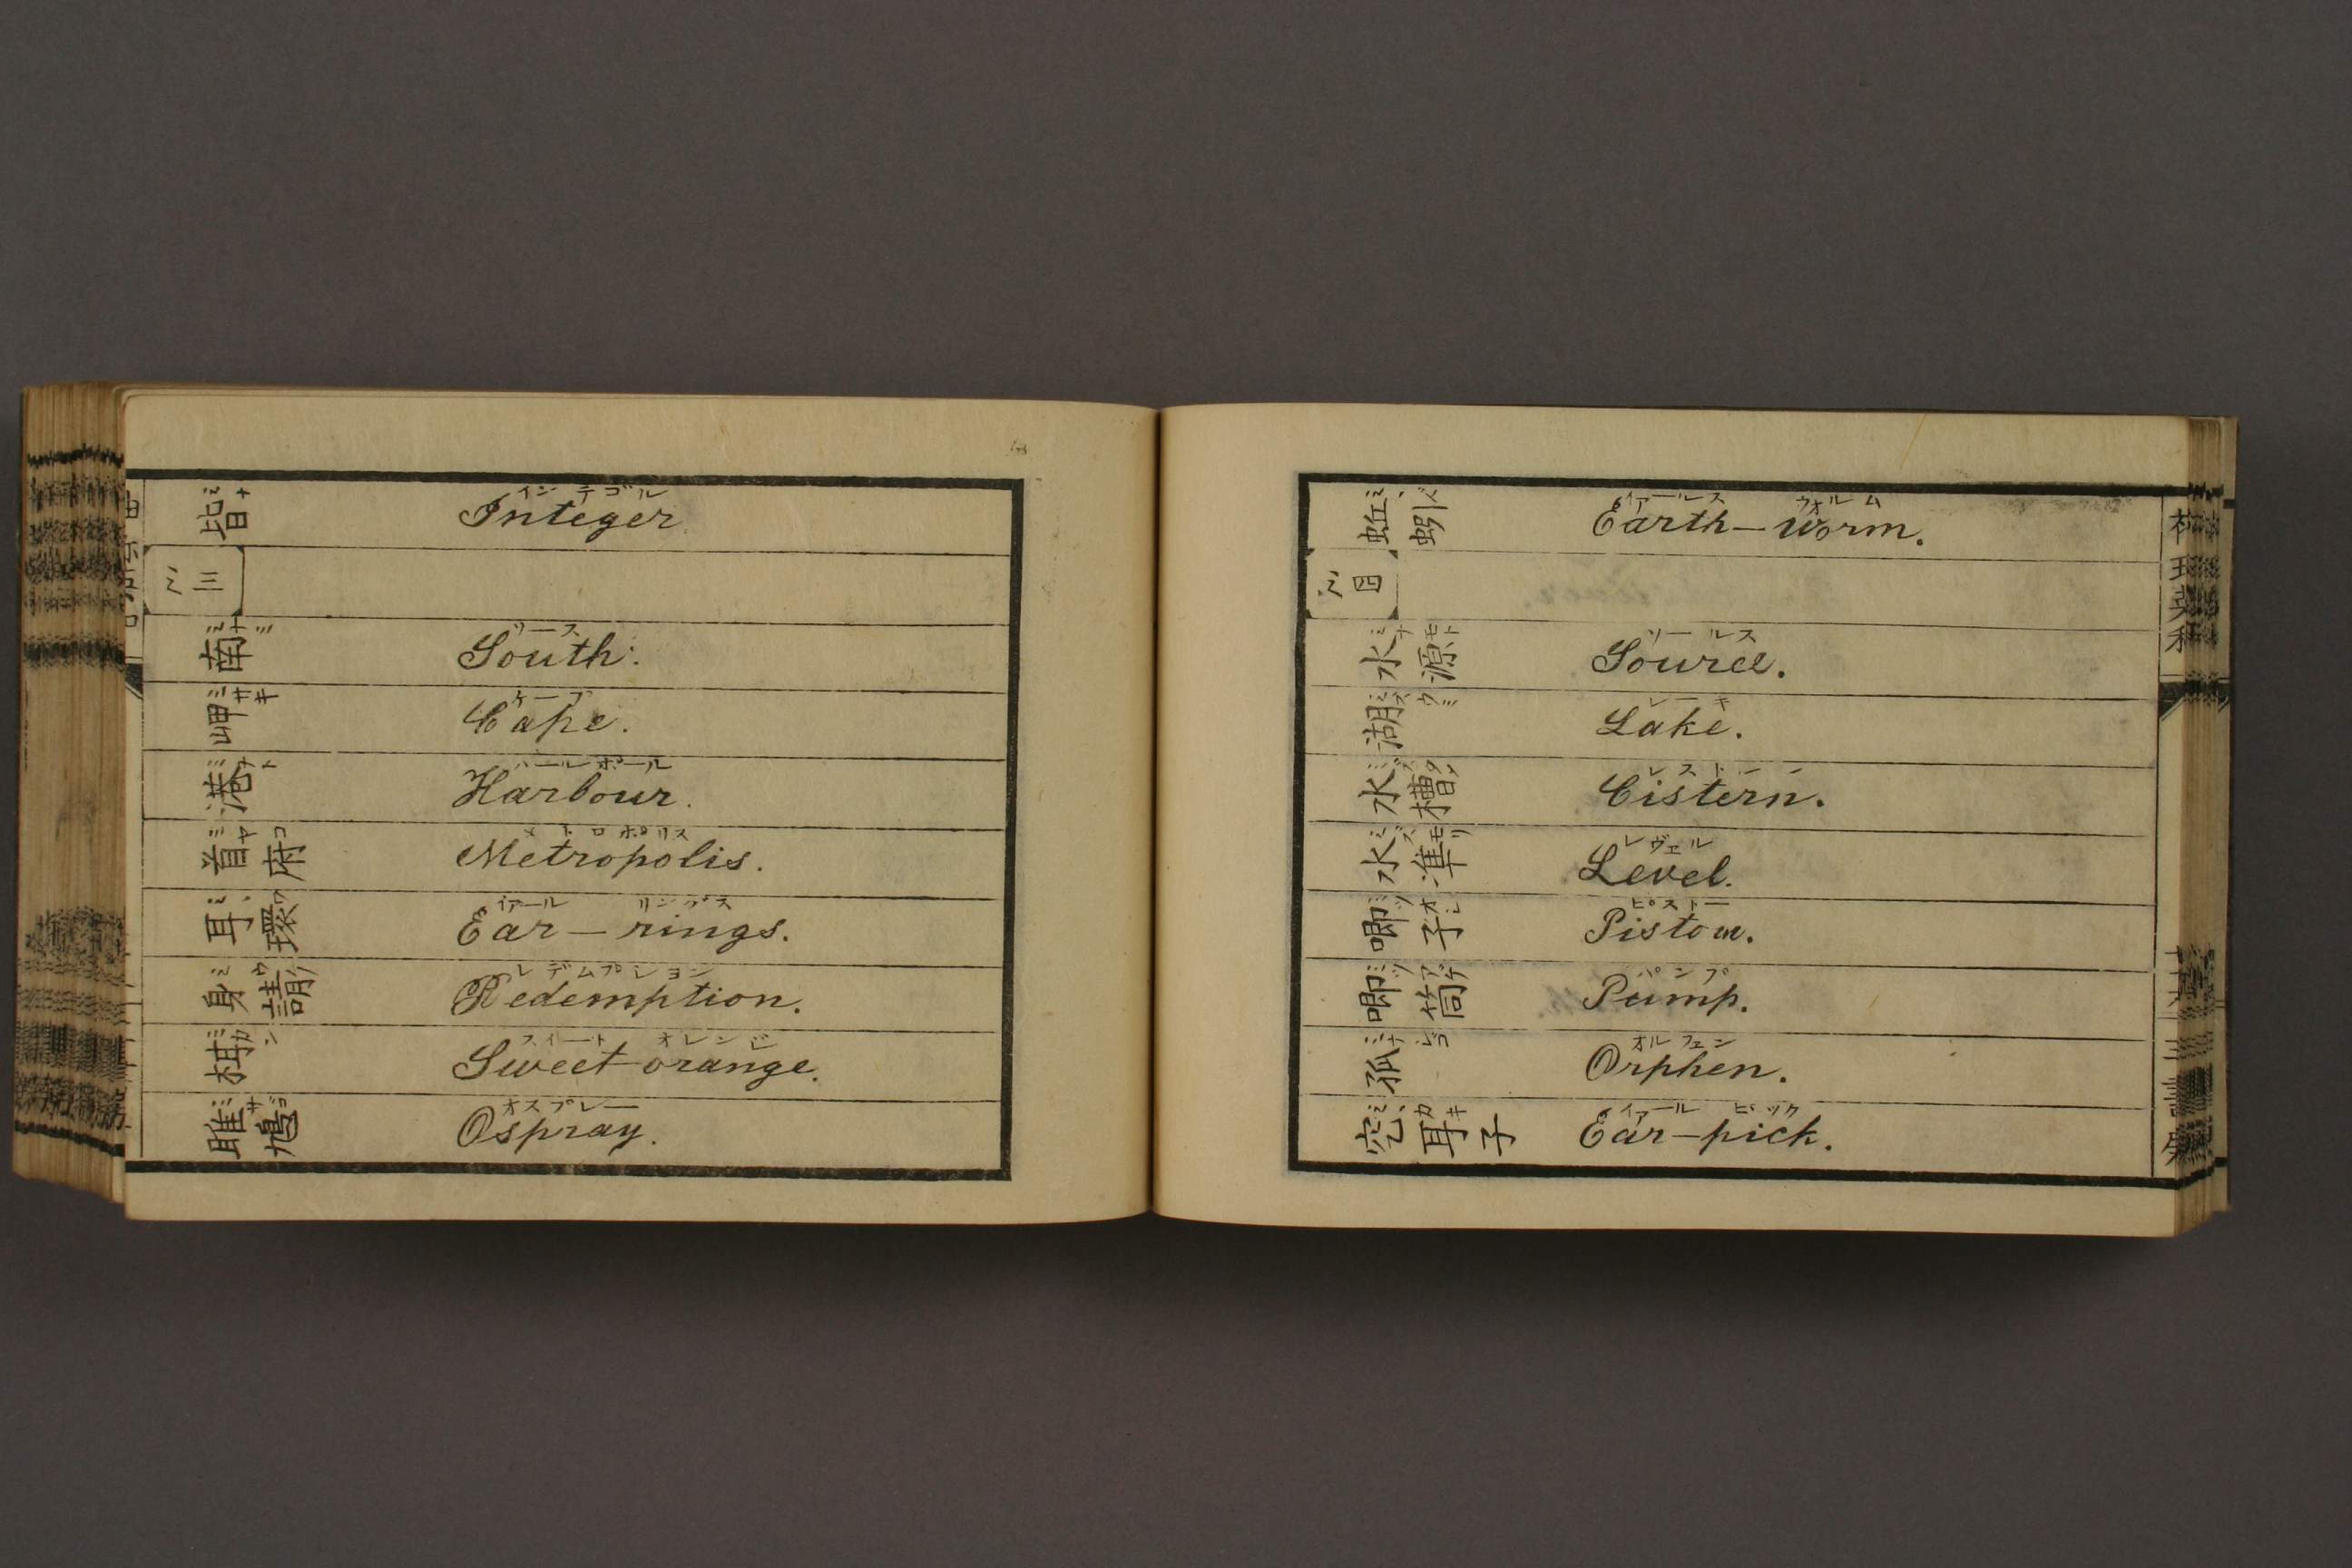 皆 ミナ インテゴル Integer
ミ 三
南 ミナミ ソース South.
岬 ミサキ ケープ Cape.
港 ミナト ハールボール Harbour.
首府 ミヤコ メトロポリス Metropolis.
耳環 ミヽワ イアール リングス Ear-rings.
身請 ミウケ レデムプション Redemption.
ミカン スイート オレンジ Sweet orange.
雎鳩 ミサゴ オスプレー Ospray.
蚯蚓 ミヽズ イアールス ウォルム Earth-worm.
ミ 四
水源 ミナモト ソールス Source.
湖 ミズウミ レーキ Lake.
水槽 ミズタメ Cistern.
水準 ミズモリ レヴェル Level.
喞子 ピストー Piston.
喞筒 パンプ Pump.
孤 ミナシゴ オルフェン Orphen.
空耳子 ミヽカキ イアール ピック Ear-pick.